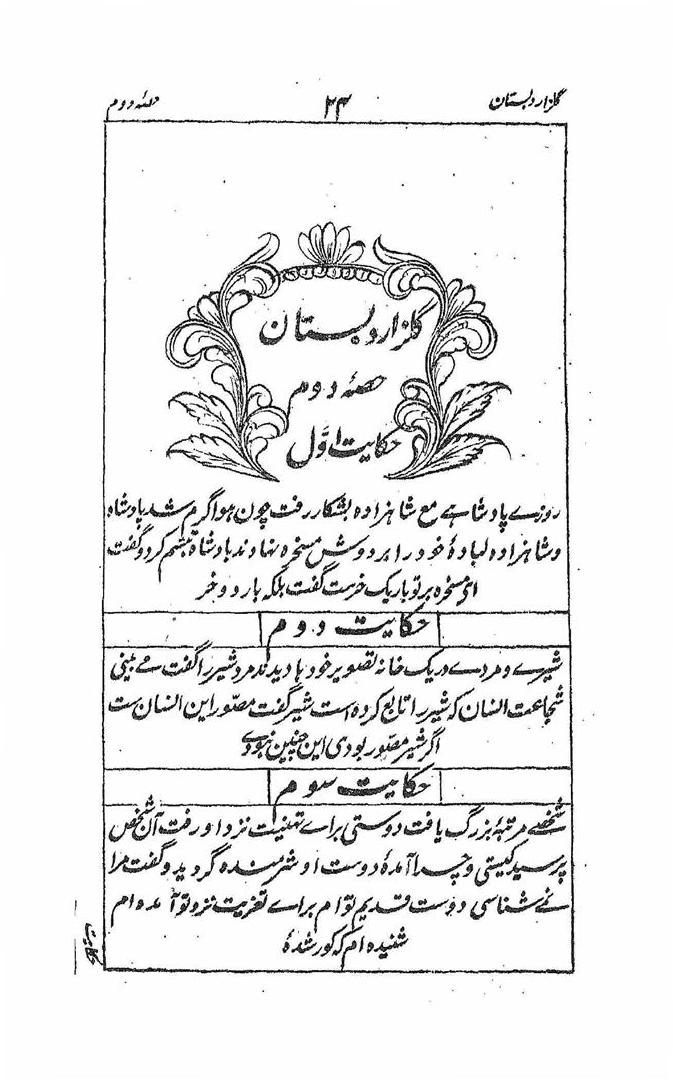 گلزار دبستان ۲۴ حصۂ دوم
گلزار دبستان
حصۂ دوم
حکایت اوّل
روزے پادشاہے مع شاہزادہ بشکار رفت چون ہوا گرم شد پادشاہ
و شاہزادہ لبادۂ خود را بر دوش مسخرہ نہادند بادشاہ تبسّم کرد و گفت
ای مسخرہ بر تو بار یک خرست گفت بلکہ بار دو خر
حکایت دوم
شیرے و مردے در یک خانہ تصویر خود ہا دیدند مرد شیر را گفت مے بینی
شجاعت انسان کہ شیر را تابع کردہ است شیر گفت مصوّر این انسان ست
اگر شیر مصوّر بودی این چنین نبودے
حکایت سوم
شخصے مرتبۂ بزرگ یافت دوستی براے تہنیت نزد او رفت آن شخص
پرسید کیستی و چرا آمدۂ دوست او شرمندہ گردید و گفت مرا
نے شناسی دوست قدیم تو ام براے تعزیت نزد تو آمدہ ام
شنیدہ ام کہ کور شدۂ